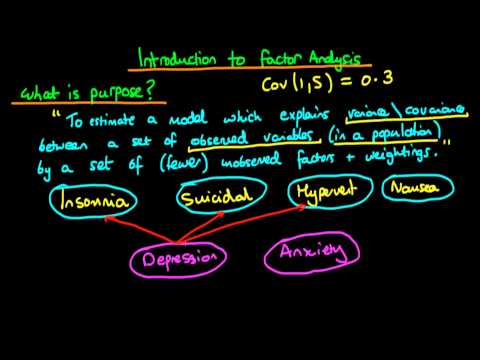 Introduction to factor Analysis
Cov(1,S) = 0.3
what is purpose?
"To estimate a model which explains variance\covariance
between a set of observed variables (in a population)
by a set of (fewer) unobserved factors + weightings."
Insomnia Suicidal Hypervent Nausea
Depression Anxiety